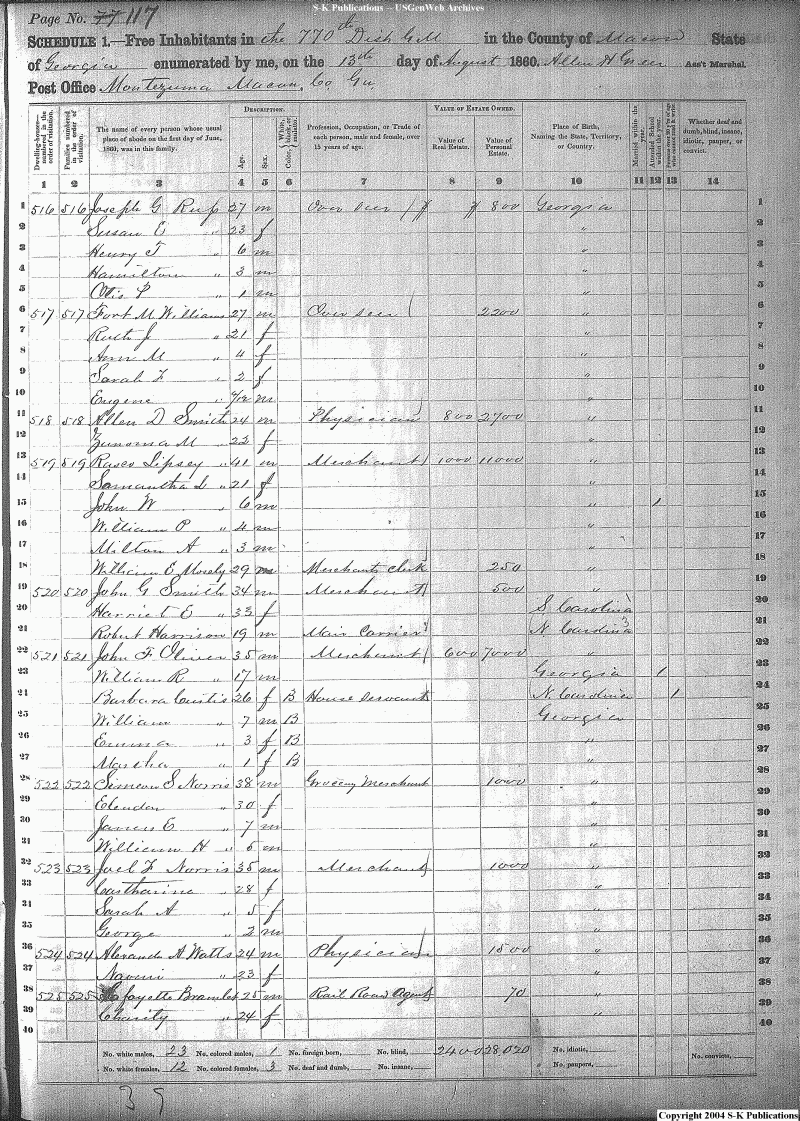 S-K Publications -- USGenWeb Archives
Page No. 77 117
SCHEDULE 1.—Free Inhabitants in the 770th Dist G.M in the County of Macon State
of Georgia enumerated by me, on the 13th day of August 1860. Allen H Greer Ass't Marshal.
Post Office Montezuma Macon Co Ga
Dwelling-houses— numbered in the order of visitation.
Families numbered in the order of visitation.
The name of every person whose usual place of abode on the first day of June, 1860, was in this family.
DESCRIPTION.
Age.
Sex.
Color, White, black, or mulatto.
Profession, Occupation, or Trade of each person, male and female, over 15 years of age.
VALUE OF ESTATE OWNED.
Value of Real Estate.
Value of Personal Estate.
Place of Birth, Naming the State, Territory, or Country.
Married within the year.
Attended School within the year.
Persons over 20 y'rs of age who cannot read & write.
Whether deaf and dumb, blind, insane, idiotic, pauper, or convict.
1 2 3 4 5 6 7 8 9 10 11 12 13 14
1 516 516 Joseph G 27 m Over seer 800 Georgia 1
2 Susan E " 23 f " 2
3 Henry T " 6 m " 3
4 Hamilton " 3 m " 4
5 Otis P " 1 m " 5
6 517 517 Fort M Williams 27 m Over seer 2200 " 6
7 Ruth J " 21 f " 7
8 Ann M " 4 f " 8
9 Sarah F " 2 f " 9
10 Eugene " m " 10
11 518 518 Allen D Smith 24 m Physician 800 2700 " 11
12 M " 22 f " 12
13 519 519 Lipsey " 41 m Merchant 1000 11000 " 13
14 Samantha L " 21 f " 14
15 John W " 6 m " 1 15
16 William P " 4 m " 16
17 Milton A " 3 m " 17
18 William E Mosely 29 m Merchants clerk 250 " 18
19 520 520 John G Smith 34 m Merchant 500 " 19
20 Harriet E " 33 f S Carolina 20
21 Robert Harrison 19 m Carrier N Carolina 21
22 521 521 John F Oliver 35 m Merchant 600 7000 " 22
23 William R " 17 m Georgia 1 23
24 Barbara Custis 26 f B House Servant N Carolina 1 24
25 William " 7 m B Georgia 25
26 Emma " 3 f B " 26
27 Martha " 1 f B " 27
28 522 522 Simeon S Norris 38 m Grocery Merchant 1000 " 28
29 " 30 f " 29
30 James E " 7 m " 30
31 William H " 5 m " 31
32 523 523 Joel F Norris 35 m Merchant 1000 " 32
33 Catharine " 28 f " 33
34 Sarah A " 5 f " 34
35 George " 2 m " 35
36 524 524 A Watts 24 m Physician 1500 " 36
37 Naomi " 23 f " 37
38 525 525 Lafayette 25 m Rail Road Agent 70 " 38
39 Charity " 24 f " 39
40 40
No. white males, 23 No. colored males, 1 No. foreign born, No. blind, 2400 28,020 No. idiotic, No. convicts,
No. white females, 12 No. colored females, 3 No. deaf and dumb, No. insane, No. paupers,
39
Copyright 2004 S-K Publications